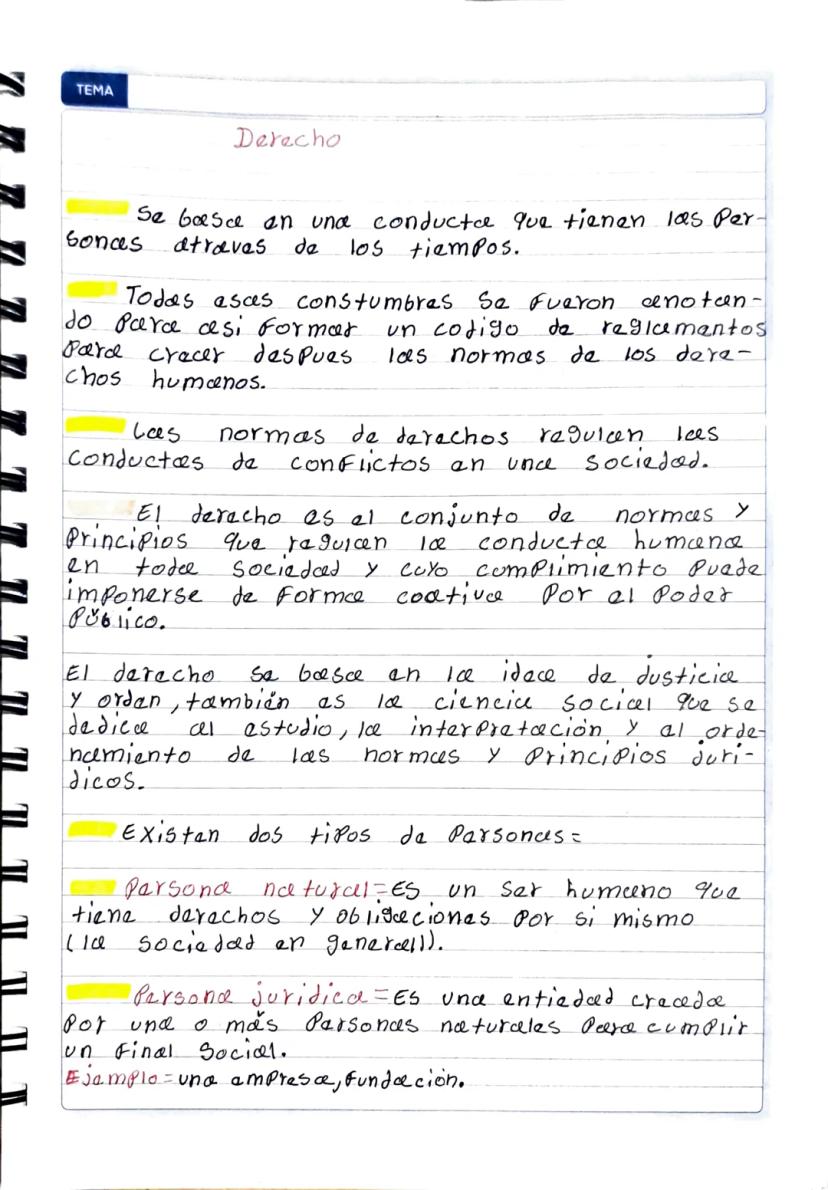 TEMA
Derecho
Se basa en una conducta que tienen las Per-
sonas atraves de los tiempos.
Todas esas constumbres se fueron anotan-
do Para asi formar un codigo de reglamentos
Para crear despues las normas de los dere-
chos humanos.
Las normas de derechos regulan las
conductas de conflictos en una sociedad.
El derecho es el conjunto de normas y
Principios que regulan la conducta humana
en toda sociedad y cuyo cumplimiento Puede
imponerse de forma coativa Por el Poder
Público.
El derecho se basa en la idea de Justicia
y orden, también es la ciencia social que se
dedica al estudio, la interpretación y al orde-
namiento de las normas y Principios Jurí-
dicos.
Existen dos tipos de Personas=
Persona natural=Es un ser humano que
tiene derechos y obligaciones por si mismo
(la sociedad en general)).
Persona juridica=Es una entiedad creada
Por una o más Personas naturales Para cumplir
un final social.
Ejemplo=una empresa, fundación.